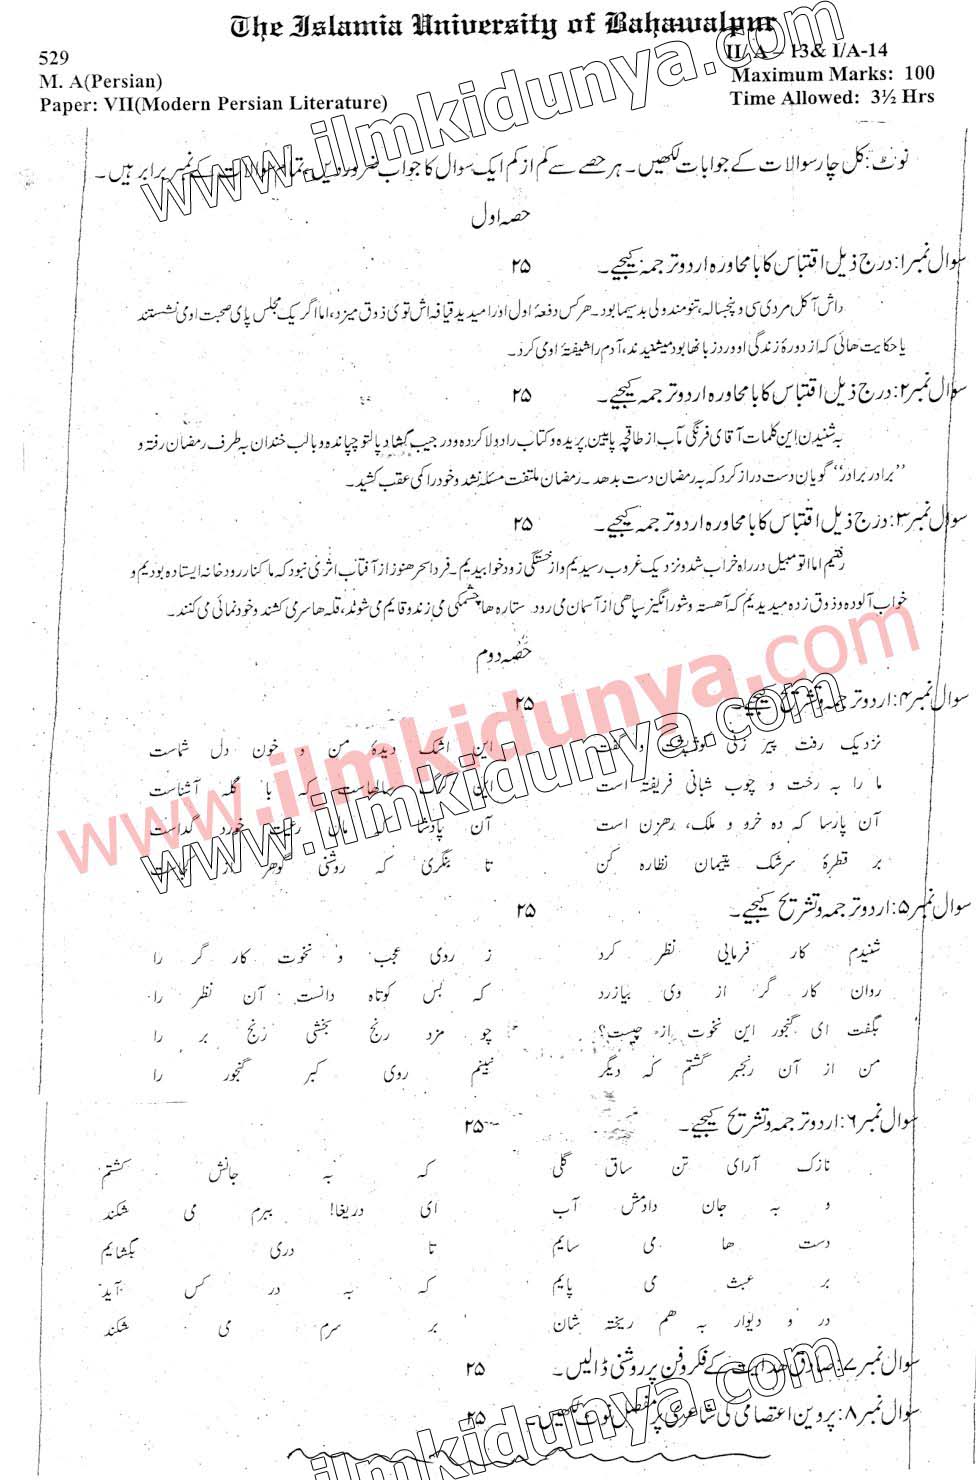 The Islamia University of Bahawalpur
529
II/A – 13& I/A-14
M. A(Persian)
Maximum Marks: 100
Paper: VII(Modern Persian Literature)
Time Allowed: 3½ Hrs
نوٹ: کل چار سوالات کے جوابات لکھیں۔ ہر حصے سے کم از کم ایک سوال کا جواب ضرور دیں۔ تمام سوالات کے نمبر برابر ہیں۔
حصہ اول
سوال نمبر۱: درج ذیل اقتباس کا بامحاورہ اردو ترجمہ کیجیے۔ ۲۵
داش آکل مردی سی و پنجسالہ، تنومند ولی بدسیما بود۔ ھر کس دفعۂ اول اورا میدید قیافہ اش توی ذوق میزد، اما اگر یک مجلس پای صحبت او می نشستند
یا حکایت ھائی کہ از دورۂ زندگی او ورد زبانھا بود میشنیدند، آدم را شیفتۂ او می کرد۔
سوال نمبر۲: درج ذیل اقتباس کا بامحاورہ اردو ترجمہ کیجیے۔ ۲۵
بہ شنیدن این کلمات آقای فرنگی مآب از طاقچہ پایین پریدہ و کتاب را دولا کردہ و در جیب گشاد پالتو چپاندہ و با لب خندان بہ طرف رمضان رفتہ و
’’برادر برادر‘‘ گویان دست دراز کرد کہ بہ رمضان دست بدھد۔ رمضان ملتفت مسئلہ نشد و خود را کمی عقب کشید۔
سوال نمبر۳: درج ذیل اقتباس کا بامحاورہ اردو ترجمہ کیجیے۔ ۲۵
رفتیم اما اتومبیل در راہ خراب شد و نزدیک غروب رسیدیم و از خستگی زود خوابیدیم۔ فردا سحر ھنوز از آفتاب اثری نبود کہ ما کنار رودخانہ ایستادہ بودیم و
خواب آلودہ و ذوق زدہ میدیدیم کہ آھستہ و شور انگیز سیاھی از آسمان می رود۔ ستارہ ھا چشمکی می زند و قایم می شوند، قلہ ھا سر می کشند و خود نمائی می کنند۔
حصہ دوم
سوال نمبر۴: اردو ترجمہ و تشریح کیجیے۔ ۲۵
نزدیک رفت پیر زنی کوژپشت و گفت این اشک دیدۂ من و خون دل شماست
ما را بہ رخت و چوب شبانی فریفتہ است این گرگ سالھاست کہ با گلہ آشناست
آن پارسا کہ دہ خرد و ملک، رھزن است آن پادشا کہ مال رعیت خورد گداست
بر قطرۂ سرشک یتیمان نظارہ کن تا بنگری کہ روشنی گوھر از کجاست
سوال نمبر۵: اردو ترجمہ و تشریح کیجیے۔ ۲۵
شنیدم کار فرمایی نظر کرد ز روی عجب و نخوت کار گر را
روان کار گر از وی بیازرد کہ بس کوتاہ دانست آن نظر را
بگفت ای گنجور این نخوت از چیست؟ چو مزد رنج بخشی رنج بر را
من از آن رنجبر گشتم کہ دیگر نبینم روی کبر گنجور را
سوال نمبر۶: اردو ترجمہ و تشریح کیجیے۔ ۲۵
نازک آرای تن ساق گلی کہ بہ جانش کشتم
و بہ جان دادمش آب ای دریغا! ببرم می شکند
دست ھا می سایم تا دری بگشایم
بر عبث می پایم کہ بہ در کس آید
در و دیوار بہ ھم ریختہ شان بر سرم می شکند
سوال نمبر۷: صادق ھدایت کے فکر و فن پر روشنی ڈالیں۔ ۲۵
سوال نمبر۸: پروین اعتصامی کی شاعری پر مفصل نوٹ لکھیں۔ ۲۵
www.ilmkidunya.com
www.ilmkidunya.com
www.ilmkidunya.com
ilmkidunya.com